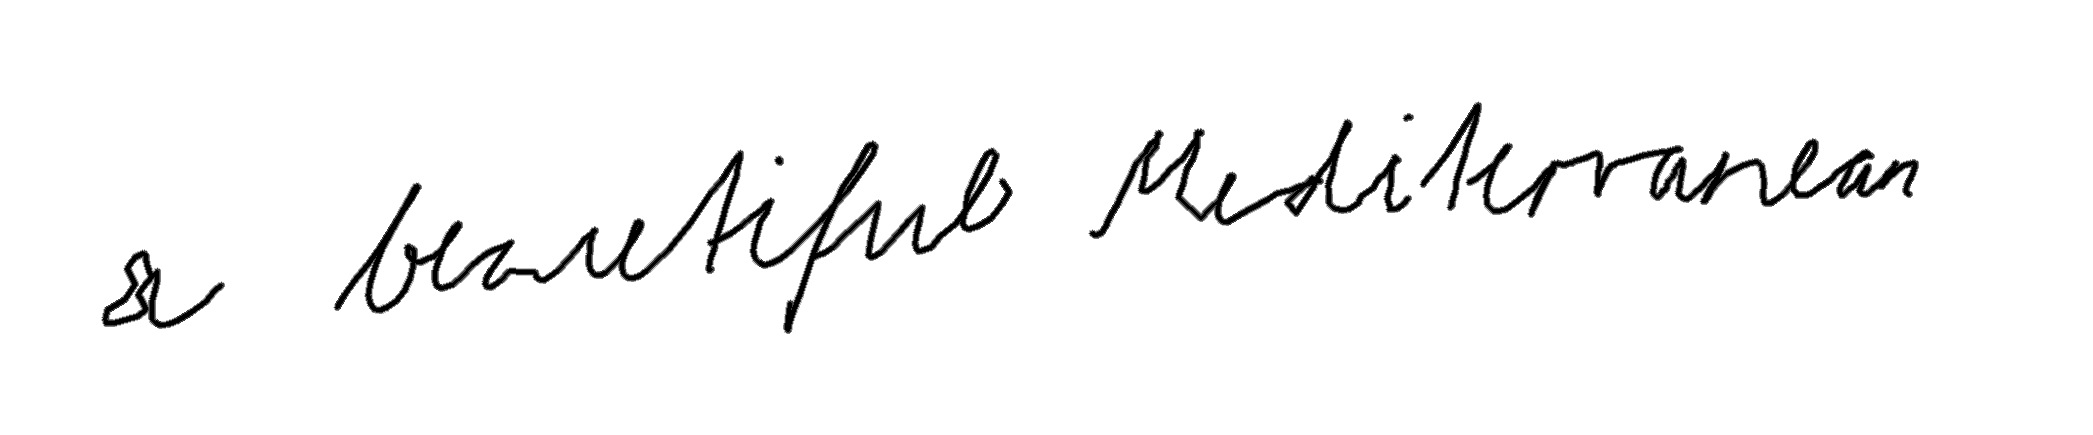 a beautiful Mediterranean